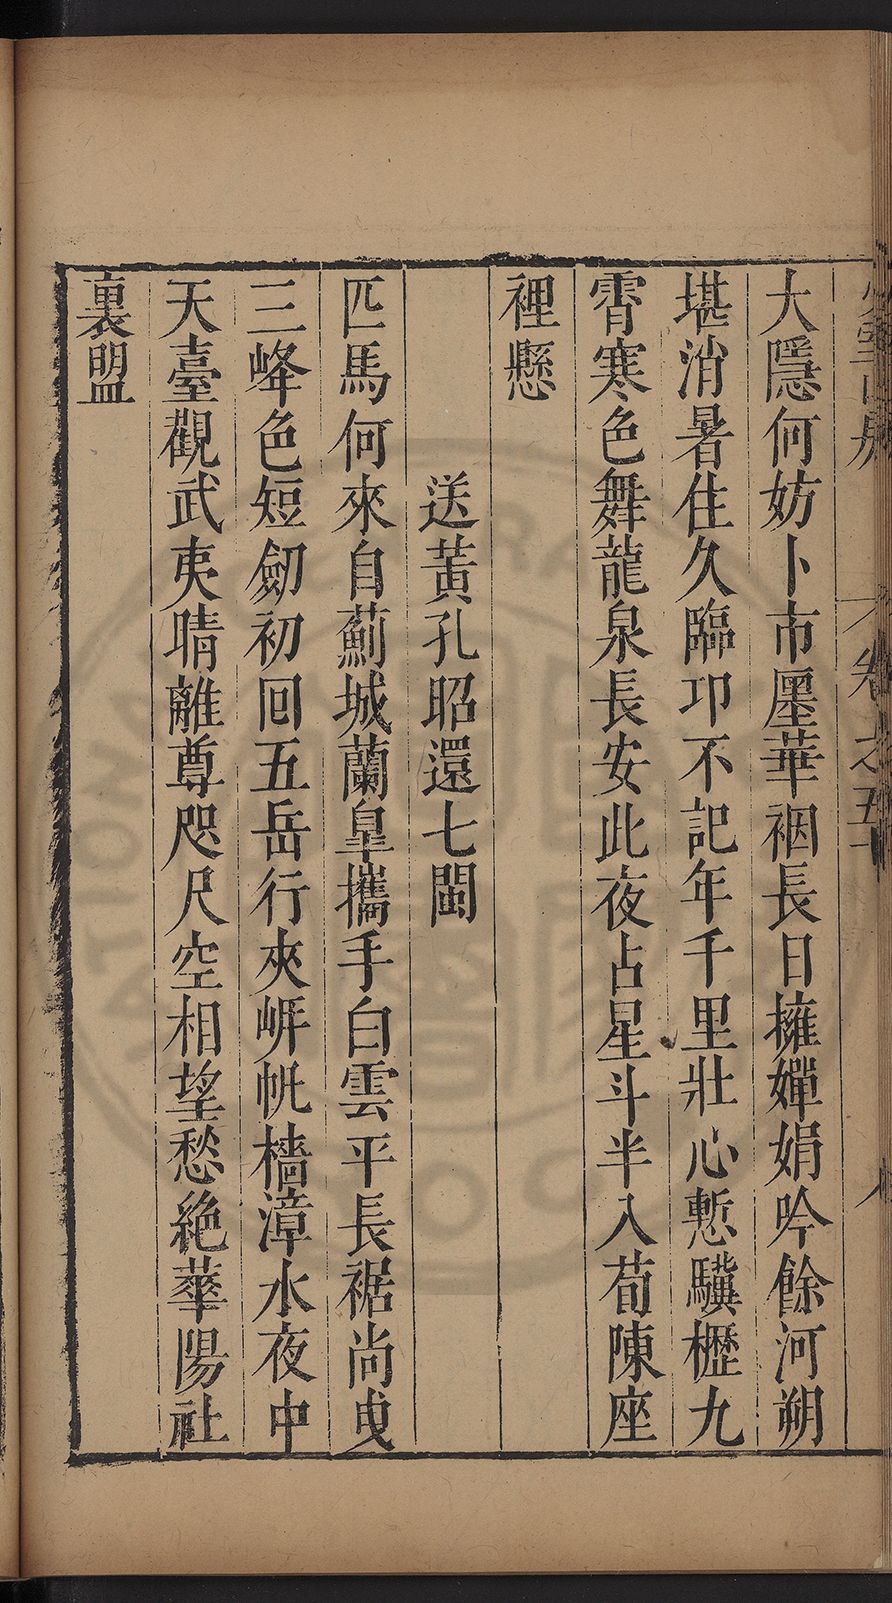 大隱何妨卜市廛華裀長日擁嬋娟吟餘河朔
堪消暑住久臨卭不記年千里壯心慙驥櫪九
霄寒色舞龍泉長安此夜占星斗半入荀陳座
裡懸
送黃孔昭還七閩
匹馬何來自薊城蘭皐攜手白雲平長裾尚曳
三峰色短劒初回五岳行夾㟁帆檣漳水夜中
天臺觀武夷晴離尊咫尺空相望愁絕華陽社
裏盟
卷之五